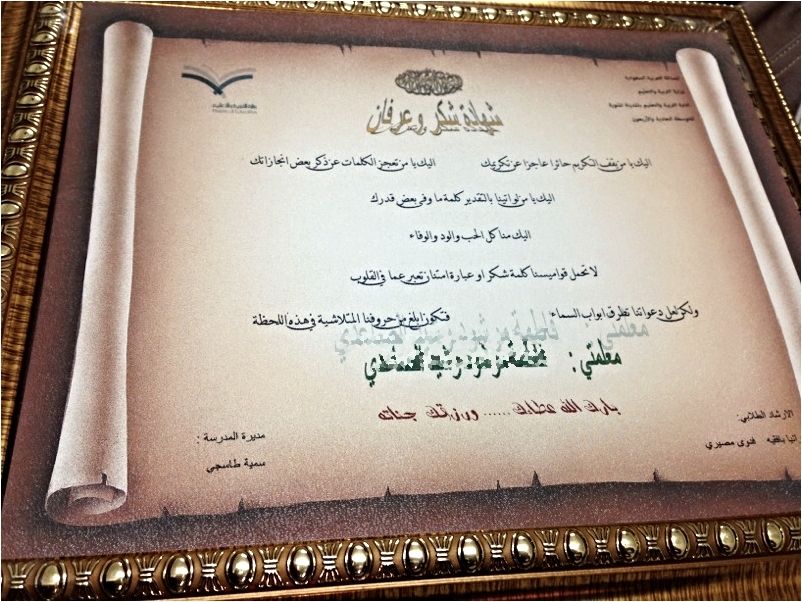 المملكة العربية السعودية
وزارة التربية والتعليم
ادارة التربية والتعليم بالمدينة المنورة
المتوسطة الحادية والأربعون
وزارة التربية والتعليم
Ministry of Education
شهادة شكر وعرفان
اليك يا من يقف التكريم حائرا عاجزا عن تكريمك اليك يا من تعجز الكلمات عن ذكر بعض انجازاتك
اليك يا من لو اتينا بالتقدير كلمة ما وفى بعض قدرك
اليك منا كل الحب والود والوفاء
لا تحمل قواميسنا كلمة شكر او عبارة امتنان تعبر عما في القلوب
ولكن لعل دعواتنا تطرق ابواب السماء فتكون ابلغ من حروفنا المتلاشية في هذه اللحظة
معلمتي : فاطمة
بارك الله عطاءك ...... ورزقك جناته
الارشاد الطلابي: مديرة المدرسة :
بافقيه فدوى مصيري سمية طاسجي